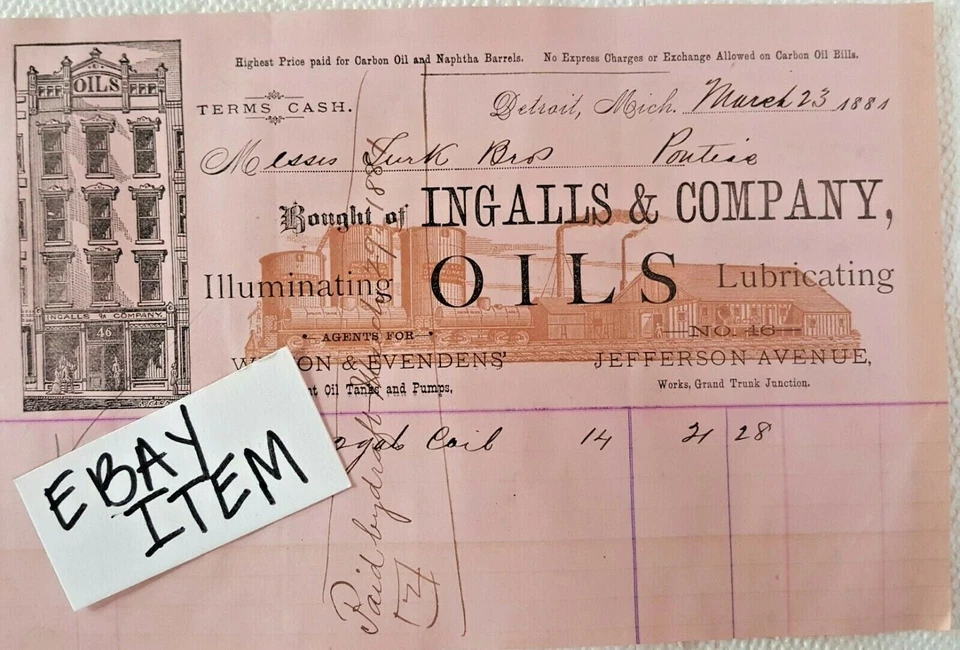 Highest Price paid for Carbon Oil and Naphtha Barrels. No Express Charges or Exchange Allowed on Carbon Oil Bills.
OILS
TERMS CASH.
Detroit, Mich. March 23 1881
Messrs Turk Bros Pontiac
Bought of INGALLS & COMPANY,
Illuminating OILS Lubricating
INGALLS & COMPANY.
46
AGENTS FOR
NO. 46
W ON & EVENDENS'
JEFFERSON AVENUE,
nt Oil Tanks and Pumps,
Works, Grand Trunk Junction.
gals Coil 14 21 28
Paid by draft
EBAY
ITEM